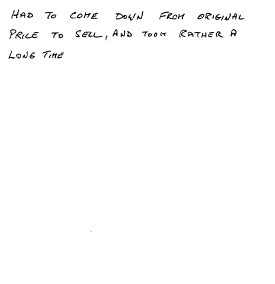 HAD TO COME DOWN FROM ORIGINAL
PRICE TO SELL, AND TOOK RATHER A
LONG TIME